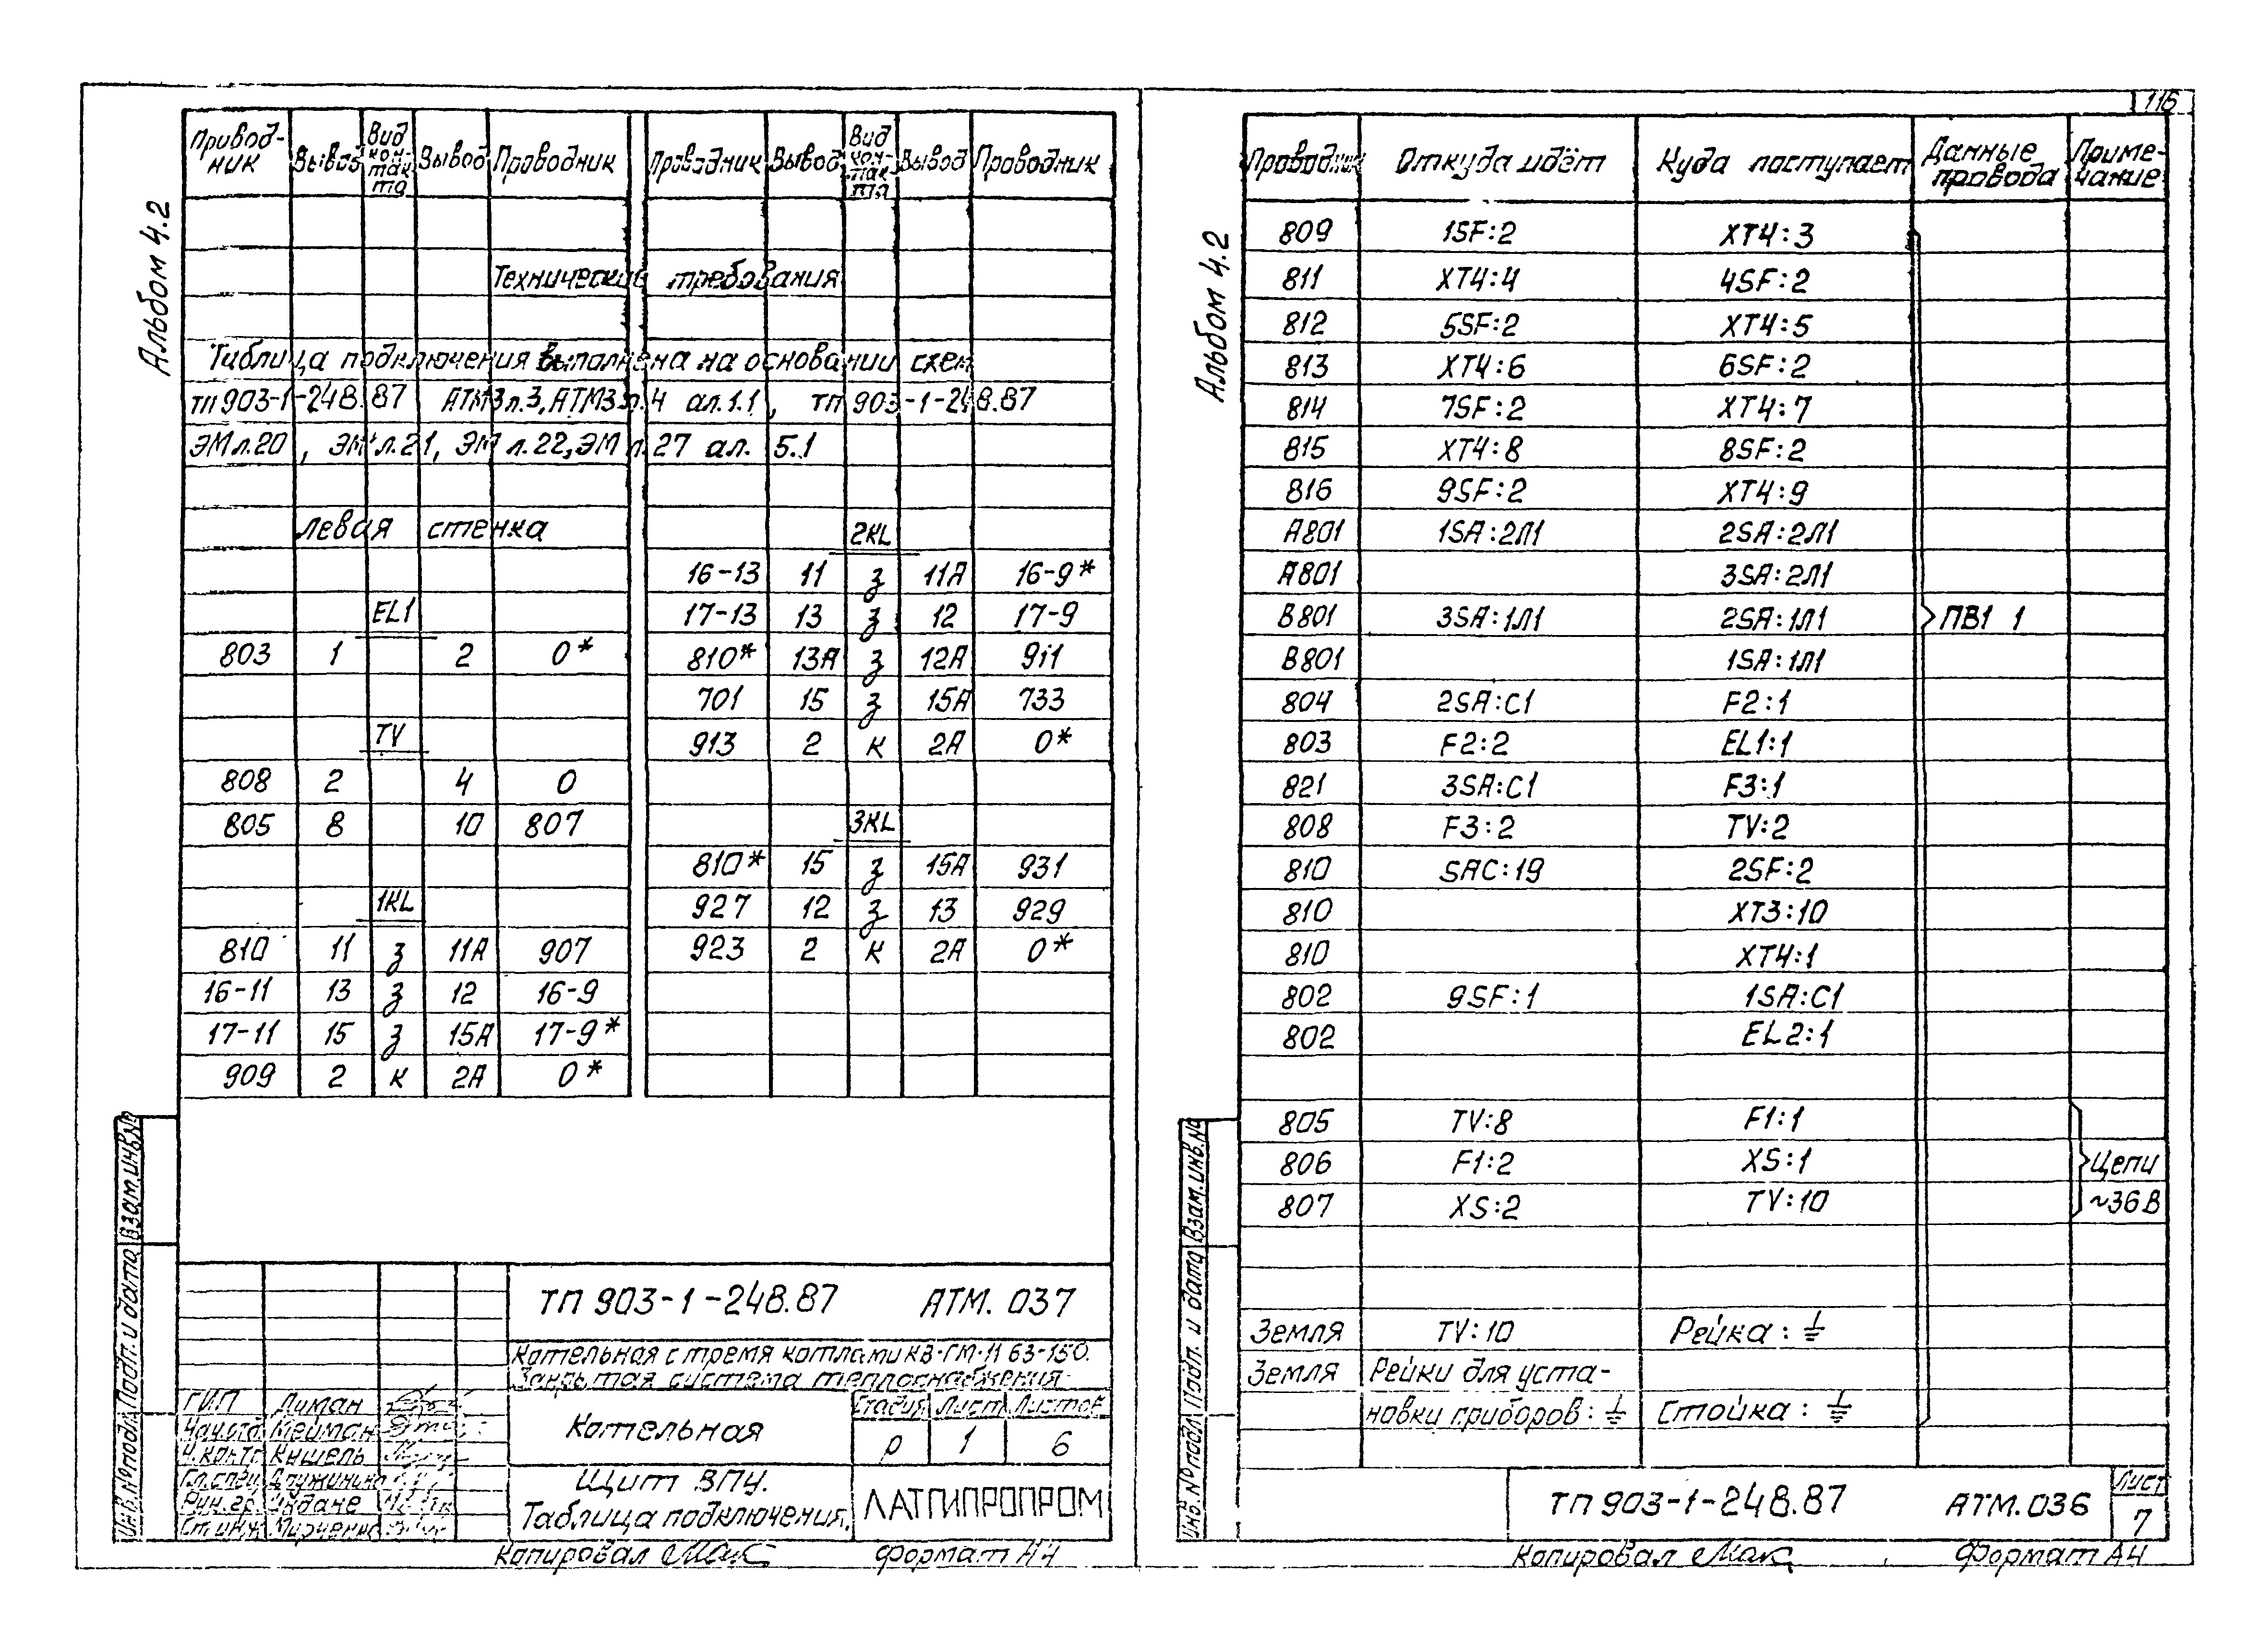 115
Альбом 4.2
Провод-ник Вывод Вид кон-так-та Вывод Проводник Проводник Вывод Вид кон-так-та Вывод Проводник
Технические требования
Таблица подключения выполнена на основании схем
ТП 903-1-248.87 АТМ3 л.3, АТМ3 л.4 ал.1.1, ТП 903-1-248.87
ЭМ л.20, ЭМ л.21, ЭМ л.22, ЭМ л.27 ал. 5.1
Левая стенка
EL1
803 1 2 0*
TV
808 2 4 0
805 8 10 807
1KL
810 11 з 11А 907
16-11 13 з 12 16-9
17-11 15 з 15А 17-9*
909 2 к 2А 0*
2KL
16-13 11 з 11А 16-9*
17-13 13 з 12 17-9
810* 13А з 12А 911
701 15 з 15А 733
913 2 к 2А 0*
3KL
810* 15 з 15А 931
927 12 з 13 929
923 2 к 2А 0*
ТП 903-1-248.87 АТМ. 037
Котельная с тремя котлами КВ-ГМ-11,63-150.
Закрытая система теплоснабжения
ГИП Лиман
Нач.отд Мейман
Н.контр Кишель
Гл.спец
Рук.гр.
Ст.инж
Котельная
Стадия Лист Листов
Р 1 6
Щит ВПУ.
Таблица подключения.
ЛАТГИПРОПРОМ
Копировал Формат А4
Инв.№ подл. Подп. и дата Взам.инв.№
Альбом 4.2
Проводник Откуда идёт Куда поступает Данные провода Приме-чание
809 1SF:2 XT4:3
811 XT4:4 4SF:2
812 5SF:2 XT4:5
813 XT4:6 6SF:2
814 7SF:2 XT4:7
815 XT4:8 8SF:2
816 9SF:2 XT4:9
А801 1SA:2Л1 2SA:2Л1
А801 3SA:2Л1
В801 3SA:1Л1 2SA:1Л1 ПВ1 1
В801 1SA:1Л1
804 2SA:C1 F2:1
803 F2:2 EL1:1
821 3SA:C1 F3:1
808 F3:2 TV:2
810 SAC:19 2SF:2
810 XT3:10
810 XT4:1
802 9SF:1 1SA:C1
802 EL2:1
805 TV:8 F1:1
806 F1:2 XS:1 Цепи
807 XS:2 TV:10 ~36В
Земля TV:10 Рейка: ⏚
Земля Рейки для уста-
новки приборов: ⏚ Стойка: ⏚
ТП 903-1-248.87 АТМ.036
Лист
7
Копировал Формат А4
Инв.№ подл. Подп. и дата Взам.инв.№